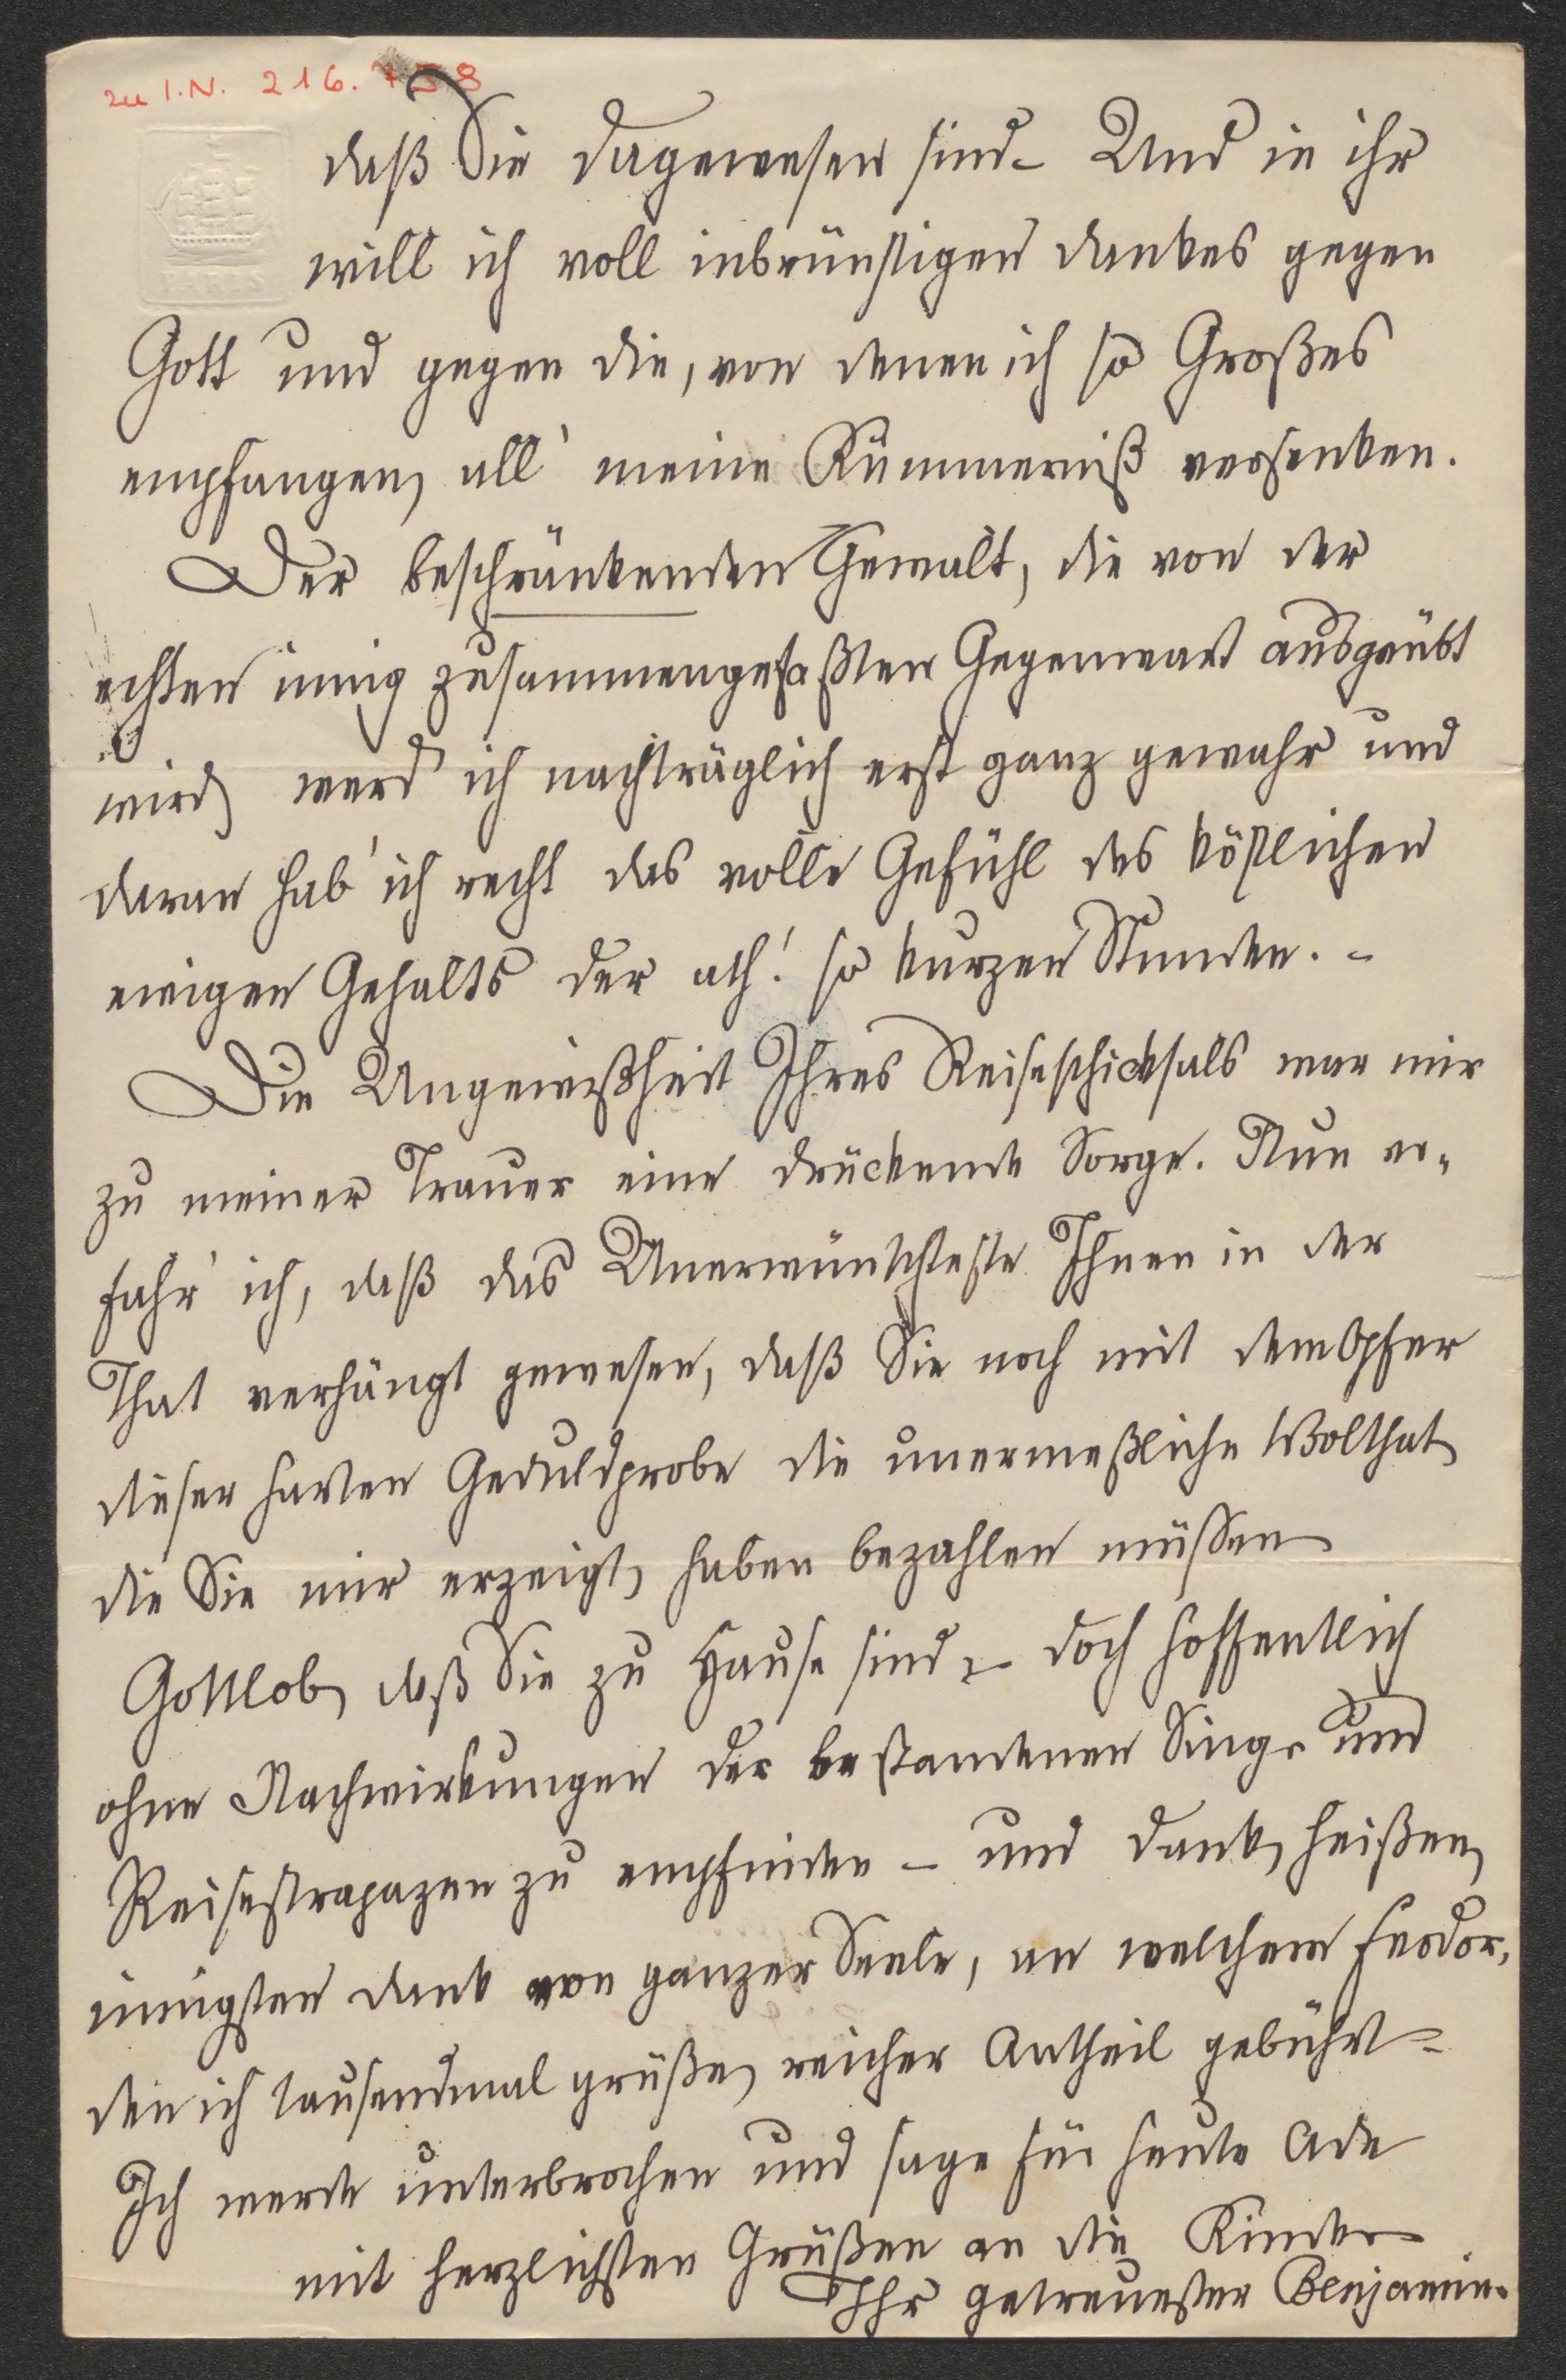 zu I.N. 216.758
daß Sie dagewesen sind – Und in ihr
will ich voll inbrünstigen Dankes gegen
Gott und gegen die, von denen ich so Großes
empfangen, all' meine Kümmerniß versenken.
Der beschränkenden Gewalt, die von der
echten innig zusammengefaßten Gegenwart ausgeübt
wird, werd' ich nachträglich erst ganz gewahr und
daran hab' ich recht das volle Gefühl des köstlichen
ewigen Gehalts der ach! so kurzen Stunden. –
Die Ungewißheit Ihres Reiseschicksals war mir
zu meiner Trauer eine drückende Sorge. Nun er-
fahr' ich, daß das Unerwünschteste Ihnen in der
That verhängt gewesen, daß Sie noch mit dem Opfer
dieser harten Geduldprobe die unermeßliche Wolthat,
die Sie mir erzeigt, haben bezahlen müssen
Gottlob, daß Sie zu Hause sind, – doch hoffentlich
ohne Nachwirkungen der bestandenen Sing- und
Reisestrapazen zu empfinden – und Dank, heißen,
innigsten Dank von ganzer Seele, an welchem Feodor,
den ich tausendmal grüße, reicher Antheil gebührt –
Ich werde unterbrochen und sage für heute Ade
mit herzlichsten Grüßen an die Kinder
Ihr getreuester Benjamin.